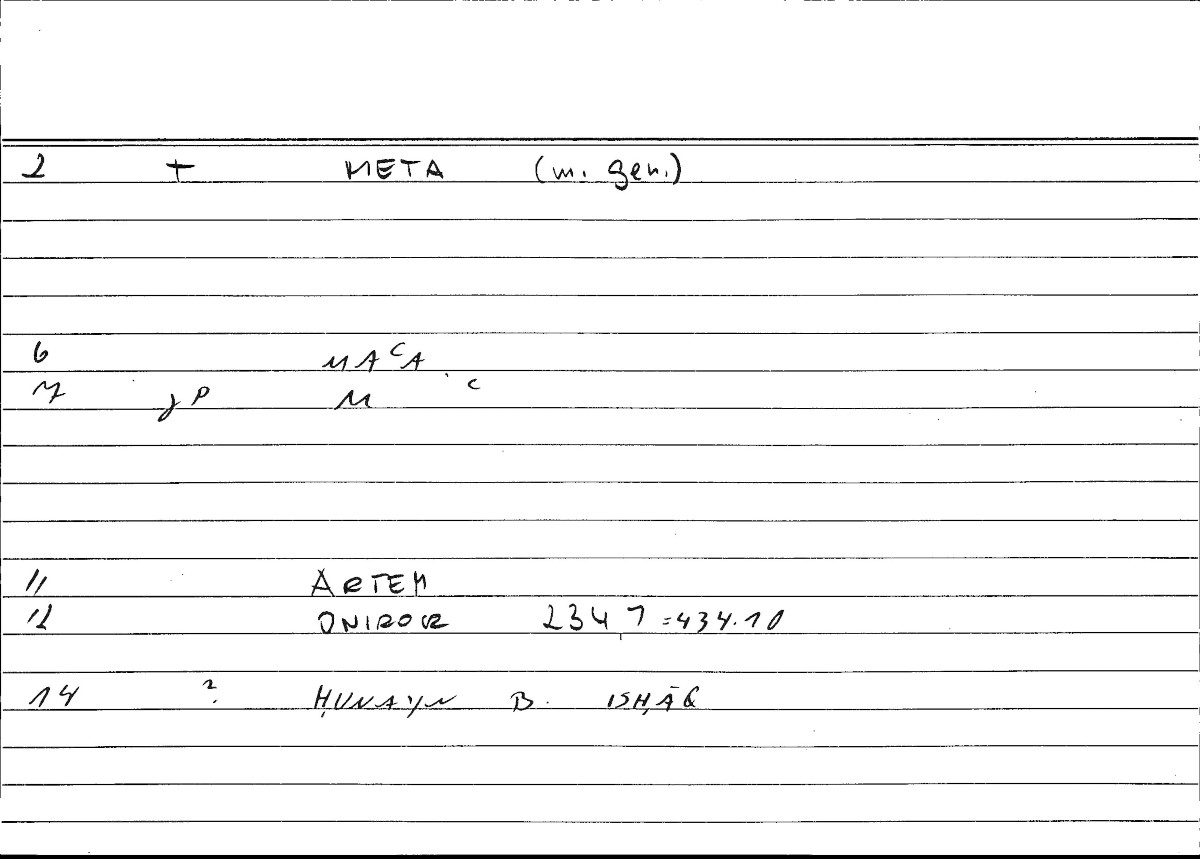 2 + META (m. gen.)
6 MAᶜA
7 jP M ᶜ
11 ARTEM
12 ONIROCR 234 7 = 434.10
14 ? ḤUNAYN B. ISḤĀQ